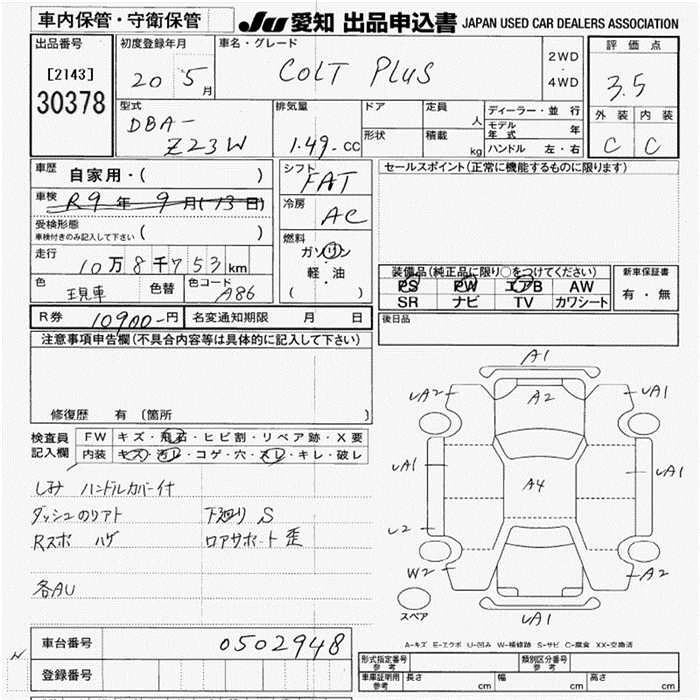 車内保管・守衛保管
JU 愛知 出品申込書 JAPAN USED CAR DEALERS ASSOCIATION
出品番号
[2143]
30378
初度登録年月
20 5 月
車名・グレード
COLT PLUS
2WD
・
4WD
評価点
3.5
外装 内装
C C
型式
DBA-
Z23W
排気量
1.49 cc
ドア
定員
人
形状
積載
kg
ディーラー・並行
モデル年式 年
ハンドル 左・右
車歴
自家用・( )
車検
R9 年 9 月(13日)
受検形態
車検付きのみ記入して下さい ( )
走行
10万8千753km
色
色替
色コード
A86
シフト
FAT
冷房
AC
燃料
ガソリン
軽・油
( )
セールスポイント(正常に機能するものに限ります)
装備品(純正品に限り○をつけてください)
PS PW エアB AW
SR ナビ TV カワシート
新車保証書
有・無
後日品
R券 10900-円
名変通知期限 月 日
注意事項申告欄(不具合内容等は具体的に記入して下さい)
修復歴 有(箇所 )
検査員
記入欄
FW キズ・飛石・ヒビ割・リペア跡・X要
内装 キズ・汚レ・コゲ・穴・スレ・キレ・破レ
しみ ハンドルカバー付
ダッシュのリアト 下廻り S
Rスポ ハゲ ロアサポート歪
各AU
A1
UA2 A2 UA1
UA1 A4 UA1
U2
W2 A2
スペア
UA1
A-キズ E-エクボ U-凹み W-補修跡 S-サビ C-腐食 XX-交換済
車台番号 0502948
登録番号
形式指定番号
参考
類別区分番号
参考
車庫証明用
参考
長さ cm 幅 cm 高さ cm